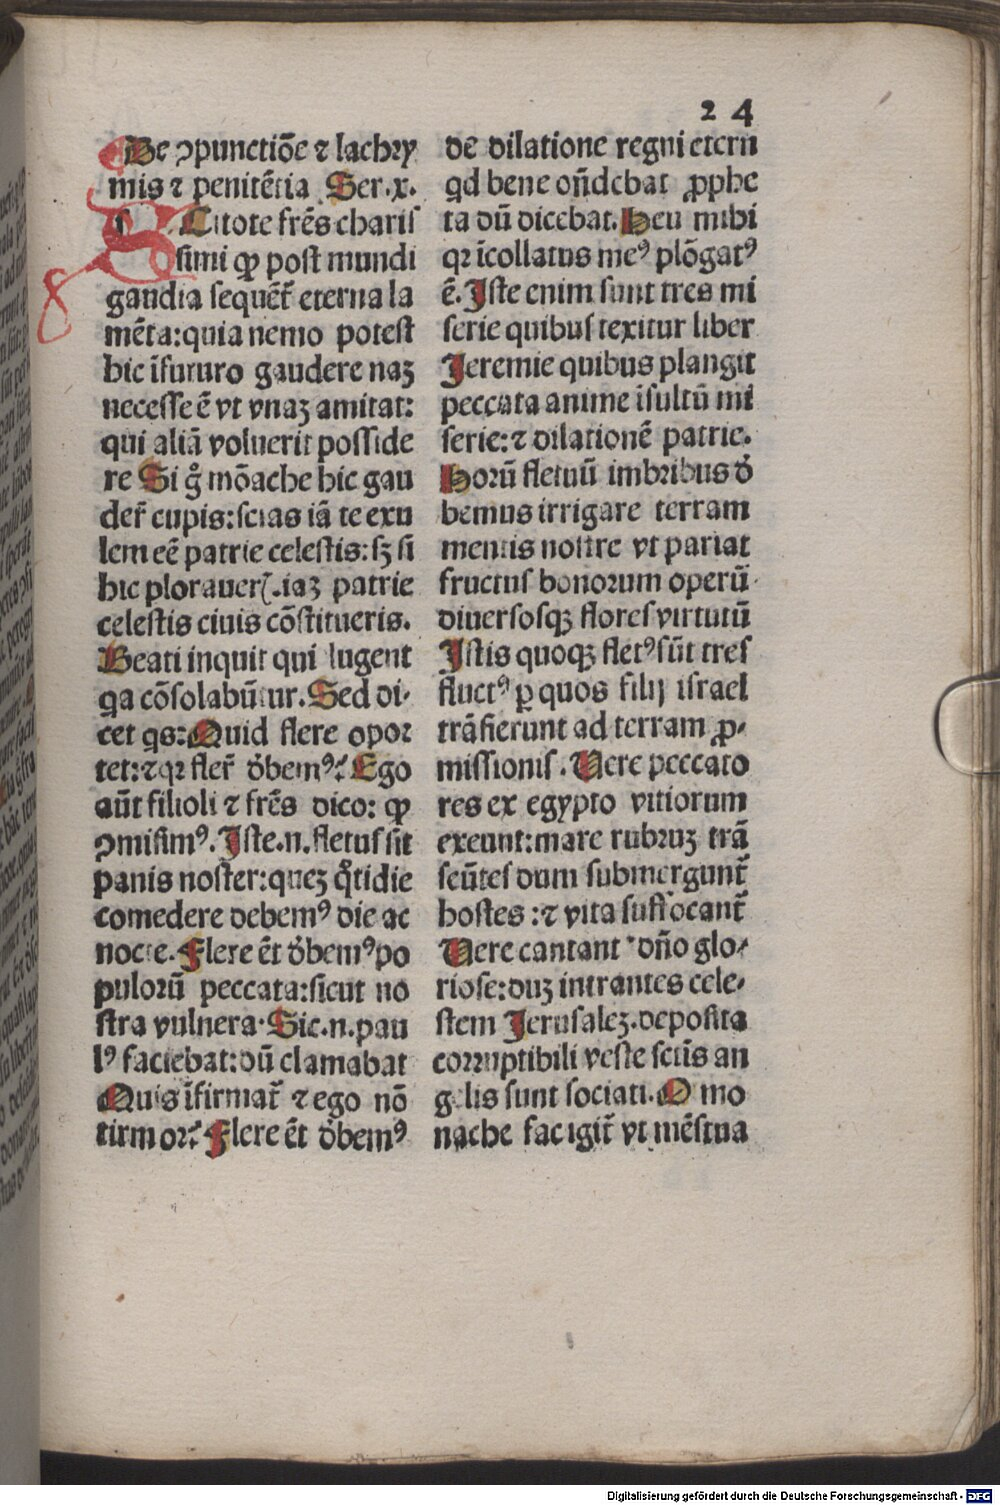 24
De ɔpunctiōe ⁊ lachry
mis ⁊ penitētia Ser.x.
S Citote frēs charis
simi qꝙ post mundi
gaudia sequēt̄ eterna la
mēta:quia nemo potest
hic īfuturo gaudere naʒ
necesse ē vt vnaʒ amitat:
qui aliā voluerit posside
re Si gͦ mōache hic gau
der̄ cupis:scias iā te exu
lem eē patrie celestis:sʒ si
hic ploraueris.iaʒ patrie
celestis ciuis cōstitueris.
Beati inquit qui lugent
qa cōsolabūtur.Sed di-
cet qs:Quid flere opor
tet:⁊ qr fler̄ dēbemꝰ? Ego
aūt filioli ⁊ frēs dico: ꝙ
ɔmisimꝰ.Iste.n.fletus sit
panis noster:queʒ qͦtidie
comedere debemꝰ die ac
nocte.Flere ēt dēbemꝰ po
pulorū peccata:sicut no
stra vulnera.Sic.n.pau
lꝰ faciebat:dū clamabat
Quis īfirmat̄ ⁊ ego nō
firmor? Flere ēt dēbemꝰ
de dilatione regni etern
qd bene oñdebat ꝓphe
ta dū dicebat.Heu mihi
qr īcollatus meꝰ plōgatꝰ
ē.Iste enim sunt tres mi
serie quibus texitur liber
Jeremie quibus plangit
peccata anime isultū mi
serie:⁊ dilationē patrie.
Horū fletuū imbribus dē
bemus irrigare terram
mentis nostre vt pariat
fructus bonorum operū
diuersosqʒ flores virtutū
Istis quoqʒ fletꝰ sūt tres
fluctꝰ ꝑ quos filij israel
trāsierunt ad terram ꝓ-
missionis.Vere peccato
res ex egypto vitiorum
exeunt:mare rubruʒ trā
seūtes dum submergunt̄
hostes:⁊ vita suffocant̄
Vere cantant dño glo-
riose:duʒ intrantes cele-
stem Jerusaleʒ.deposita
corruptibili veste scīs an
gelis sunt sociati.O mo
nache fac igit̄ vt mēstua
8
Digitalisierung gefördert durch die Deutsche Forschungsgemeinschaft - DFG